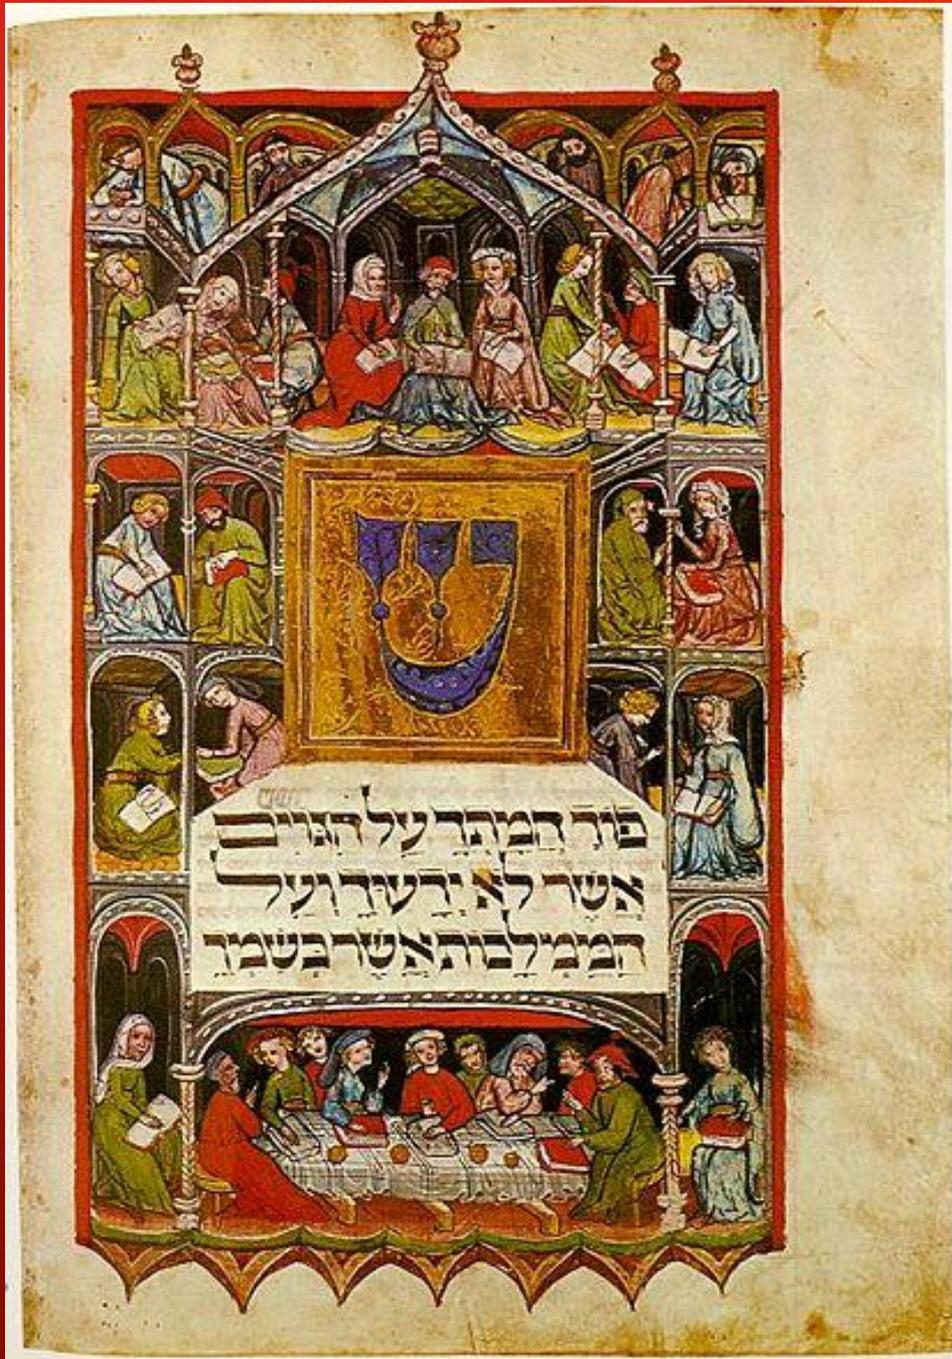 שׁ
פוֹךְ חֲמָתְךָ עַל הַגּוֹיִם
אֲשֶׁר לֹא יְדָעוּךָ וְעַל
הַמַּמְלָכוֹת אֲשֶׁר בְּשִׁמְךָ